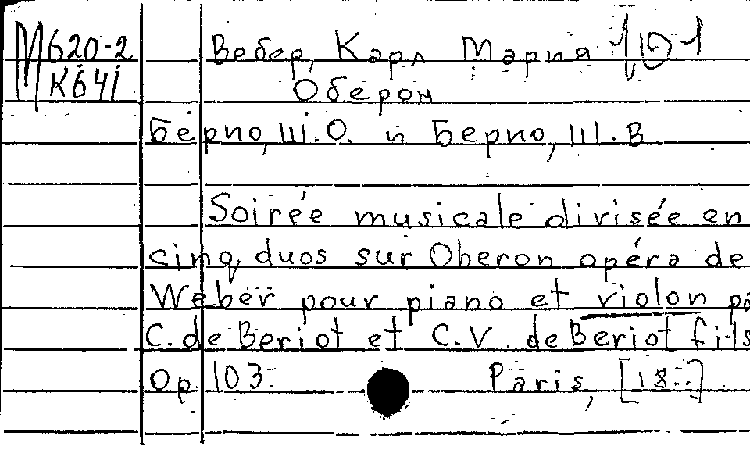 М620-2 Вебер, Карл Мария
К641 Оберон
Берио, Ш.О. и Берио, Ш.В
Soirée musicale divisée en
cinq duos sur Oberon opéra de
Weber pour piano et violon pa
C. de Beriot et C.V. de Beriot fils
Op 103. Paris, [18..]